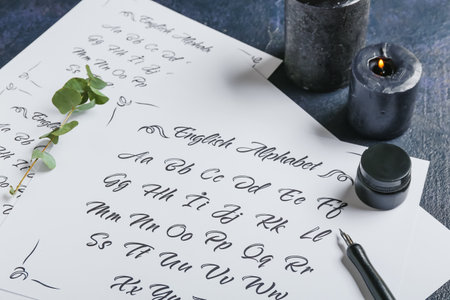 English Alphabet
Aa Bb Cc Dd
Gg Hh Ii Jj
Mm Nn Oo Pp
English Alphabet
Aa Bb Cc Dd Ee Ff
Gg Hh Ii Jj Kk Ll
Mm Nn Oo Pp Qq Rr
Ss Tt Uu Vv Ww
Xx Yy Zz